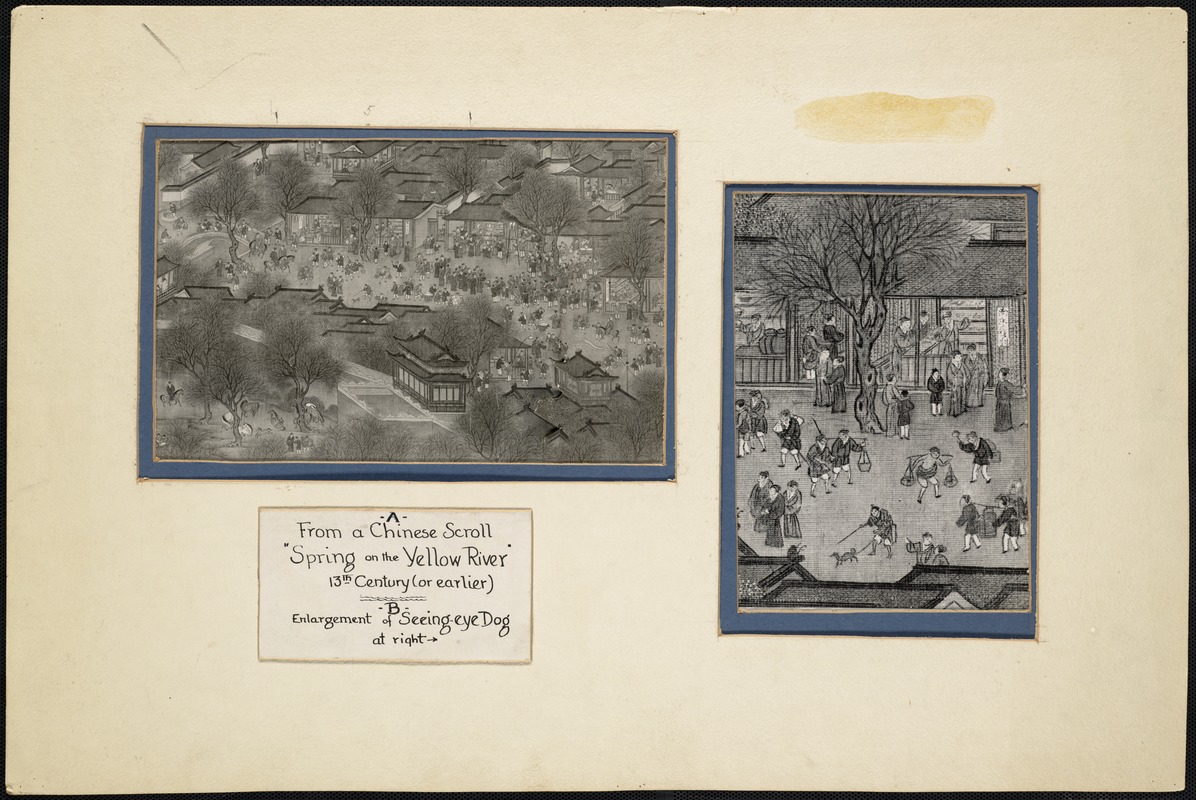 -A-
From a Chinese Scroll
"Spring on the Yellow River"
13th Century (or earlier)
-B-
Enlargement of Seeing-eye Dog
at right→